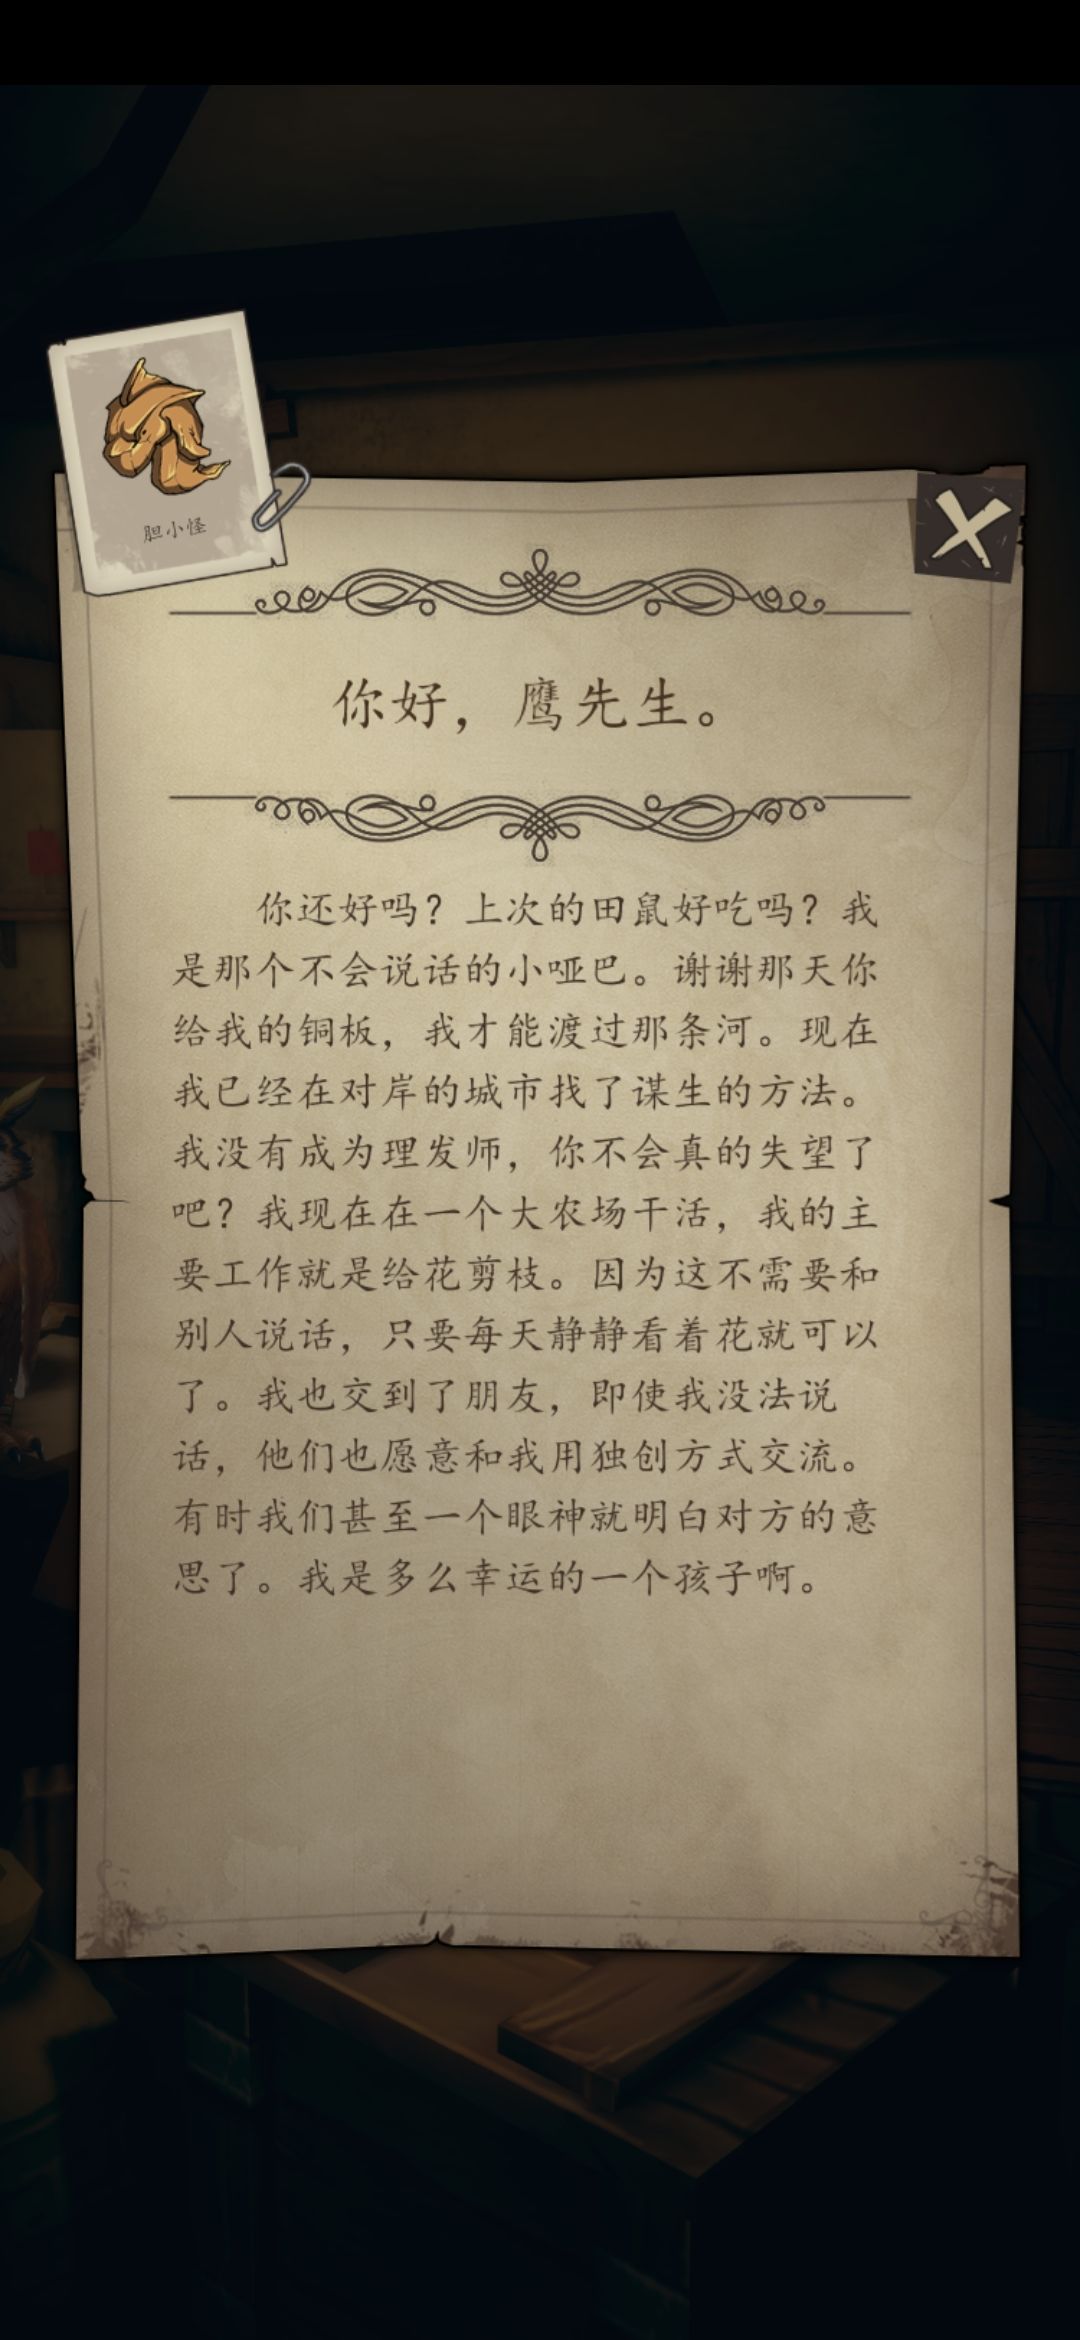 胆小怪
你好，鹰先生。
你还好吗？上次的田鼠好吃吗？我
是那个不会说话的小哑巴。谢谢那天你
给我的铜板，我才能渡过那条河。现在
我已经在对岸的城市找了谋生的方法。
我没有成为理发师，你不会真的失望了
吧？我现在在一个大农场干活，我的主
要工作就是给花剪枝。因为这不需要和
别人说话，只要每天静静看着花就可以
了。我也交到了朋友，即使我没法说
话，他们也愿意和我用独创方式交流。
有时我们甚至一个眼神就明白对方的意
思了。我是多么幸运的一个孩子啊。